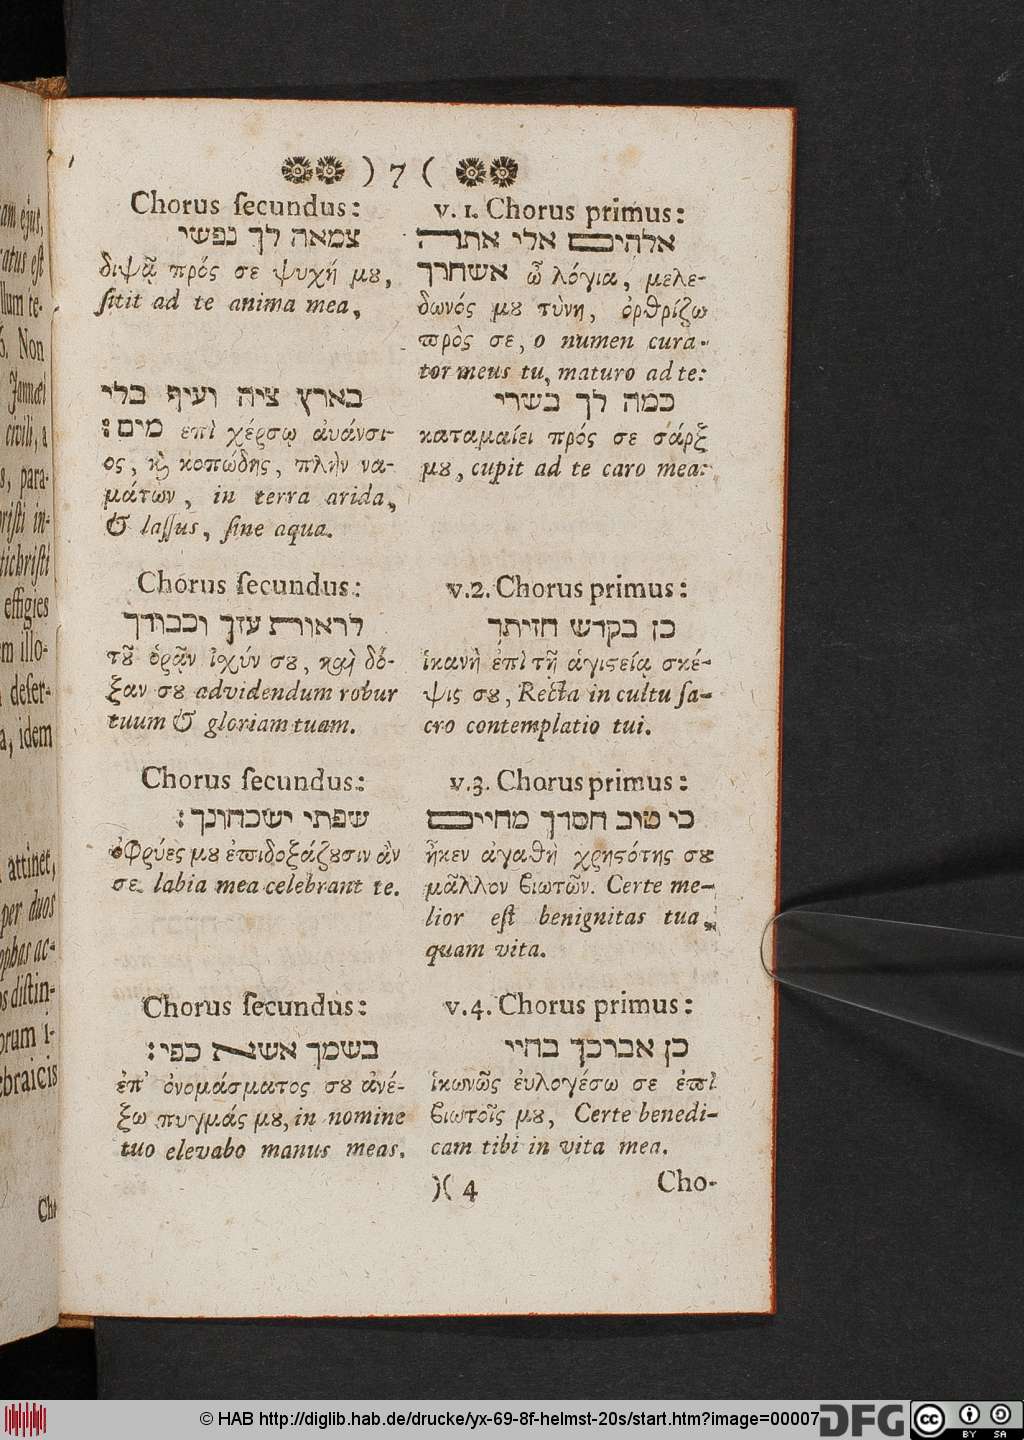 ejus,
Non
Jannæi
civili, a
effigies
idem
attinet,
per duos
) 7 (
v. 1. Chorus primus:
אלהים אלי אתה
אשחרך ὦ λόγια, μελε-
δωνός μȣ τύνη, ὀρθρίζω
πρὸς σε, o numen cura-
tor meus tu, maturo ad te:
כמה לך בשרי
καταμαίει πρός σε σάρξ
μȣ, cupit ad te caro mea:
Chorus ſecundus:
צמאה לך נפשי
διψᾷ πρός σε ψυχή μȣ,
ſitit ad te anima mea,
בארץ ציה ועיף בלי
מים: επὶ χέρσῳ ἀυάνσι-
ος, ϗ κοπώδης, πλὴν να-
μάτων, in terra arida,
& laſſus, ſine aqua.
v.2. Chorus primus:
כן בקדש חזיתך
ἱκανὴ ἐπὶ τῇ ἁγιϛείᾳ σκέ-
ψις σȣ, Recta in cultu ſa-
cro contemplatio tui.
Chorus ſecundus:
לראות עזך וכבודך
τȣ͂ ὁρᾷν ἰχύν σȣ, καὶ δό-
ξαν σȣ ad videndum robur
tuum & gloriam tuam.
v.3. Chorus primus:
כי טוב חסדך מחיים
ἦκεν ἀγαθὴ χρηϛότης σȣ
μᾶλλον βιωτῶν. Certe me-
lior eſt benignitas tua,
quam vita.
Chorus ſecundus:
שפתי ישבחונך:
ὀφρύες μȣ ἐπιδοξάζȣσιν ἂν
σε labia mea celebrant te.
v.4. Chorus primus:
כן אברכך בחיי
ἱκωνῶς ἐυλογέσω σε ἐπὶ
βιωτοῖς μȣ, Certe benedi-
cam tibi in vita mea.
Chorus ſecundus:
בשמך אשא כפי:
ἐπ᾽ ὀνομάσματος σȣ ἀνέ-
ξω πυγμάς μȣ, in nomine
tuo elevabo manus meas.
)( 4 Cho-
© HAB http://diglib.hab.de/drucke/yx-69-8f-helmst-20s/start.htm?image=00007
DFG
cc BY SA